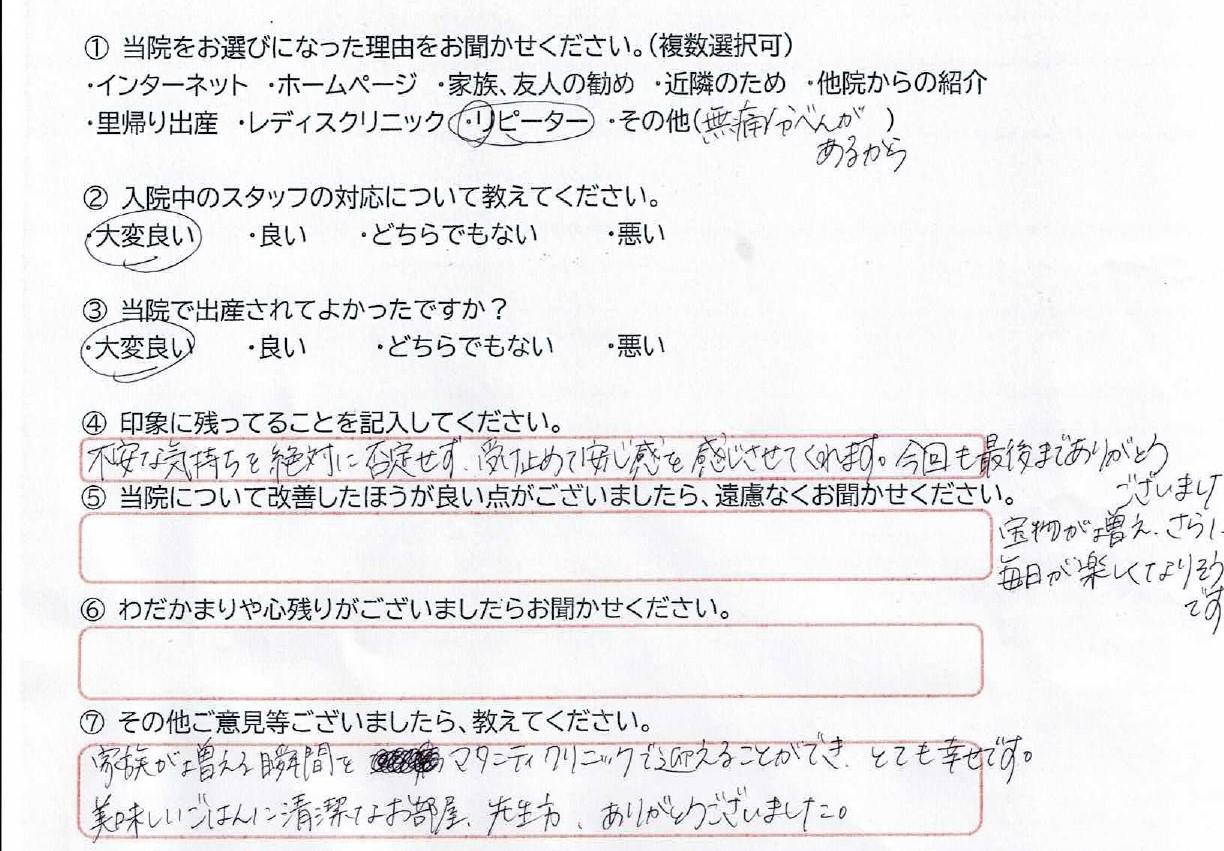 ① 当院をお選びになった理由をお聞かせください。(複数選択可)
・インターネット ・ホームページ ・家族、友人の勧め ・近隣のため ・他院からの紹介
・里帰り出産 ・レディスクリニック ・リピーター ・その他(無痛分べんが )
あるから
② 入院中のスタッフの対応について教えてください。
・大変良い ・良い ・どちらでもない ・悪い
③ 当院で出産されてよかったですか?
・大変良い ・良い ・どちらでもない ・悪い
④ 印象に残ってることを記入してください。
不安な気持ちを絶対に否定せず、受け止めて安心感を感じさせてくれます。今回も最後までありがとう
ございまし
⑤ 当院について改善したほうが良い点がございましたら、遠慮なくお聞かせください。
宝物が増え、さらに
毎日が楽しくなりそう
です
⑥ わだかまりや心残りがございましたらお聞かせください。
⑦ その他ご意見等ございましたら、教えてください。
家族が増える瞬間を マタニティクリニックで迎えることができ、とても幸せです。
美味しいごはんに清潔なお部屋、先生方、ありがとうございました。